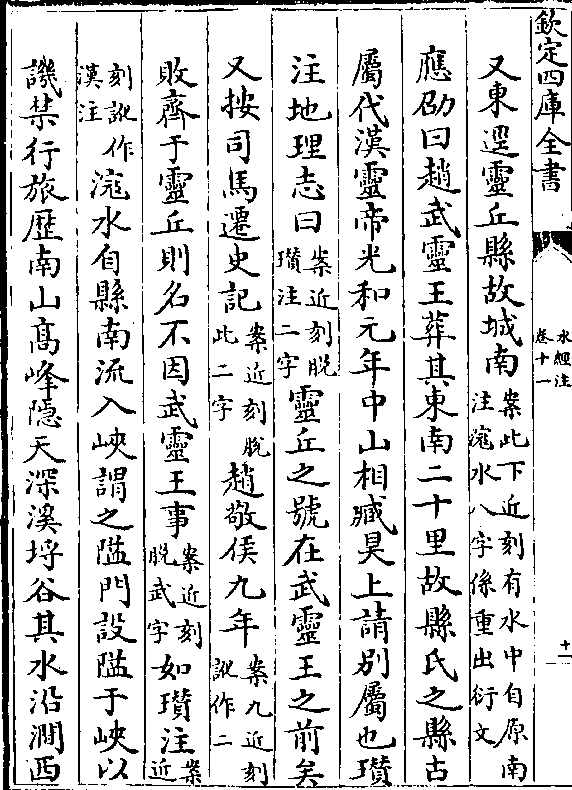 欽定四庫全書
水經注
卷十一
十一
又東逕靈丘縣故城南案此下近刻有水中自原南注滱水八字係重出衍文
應劭曰趙武靈王葬其東南二十里故縣氏之縣古
屬代漢靈帝光和元年中山相臧昊上請别屬也瓚
注地理志曰案近刻脫瓚注二字靈丘之號在武靈王之前矣
又按司馬遷史記案近刻脫此二字趙敬侯九年案九近刻訛作二
敗齊于靈丘則名不因武靈王事案近刻脫武字如瓚注案近
刻訛作漢注滱水自縣南流入峽謂之隘門設隘于峽以
譏禁行旅歷南山高峰隱天深溪埒谷其水沿澗西